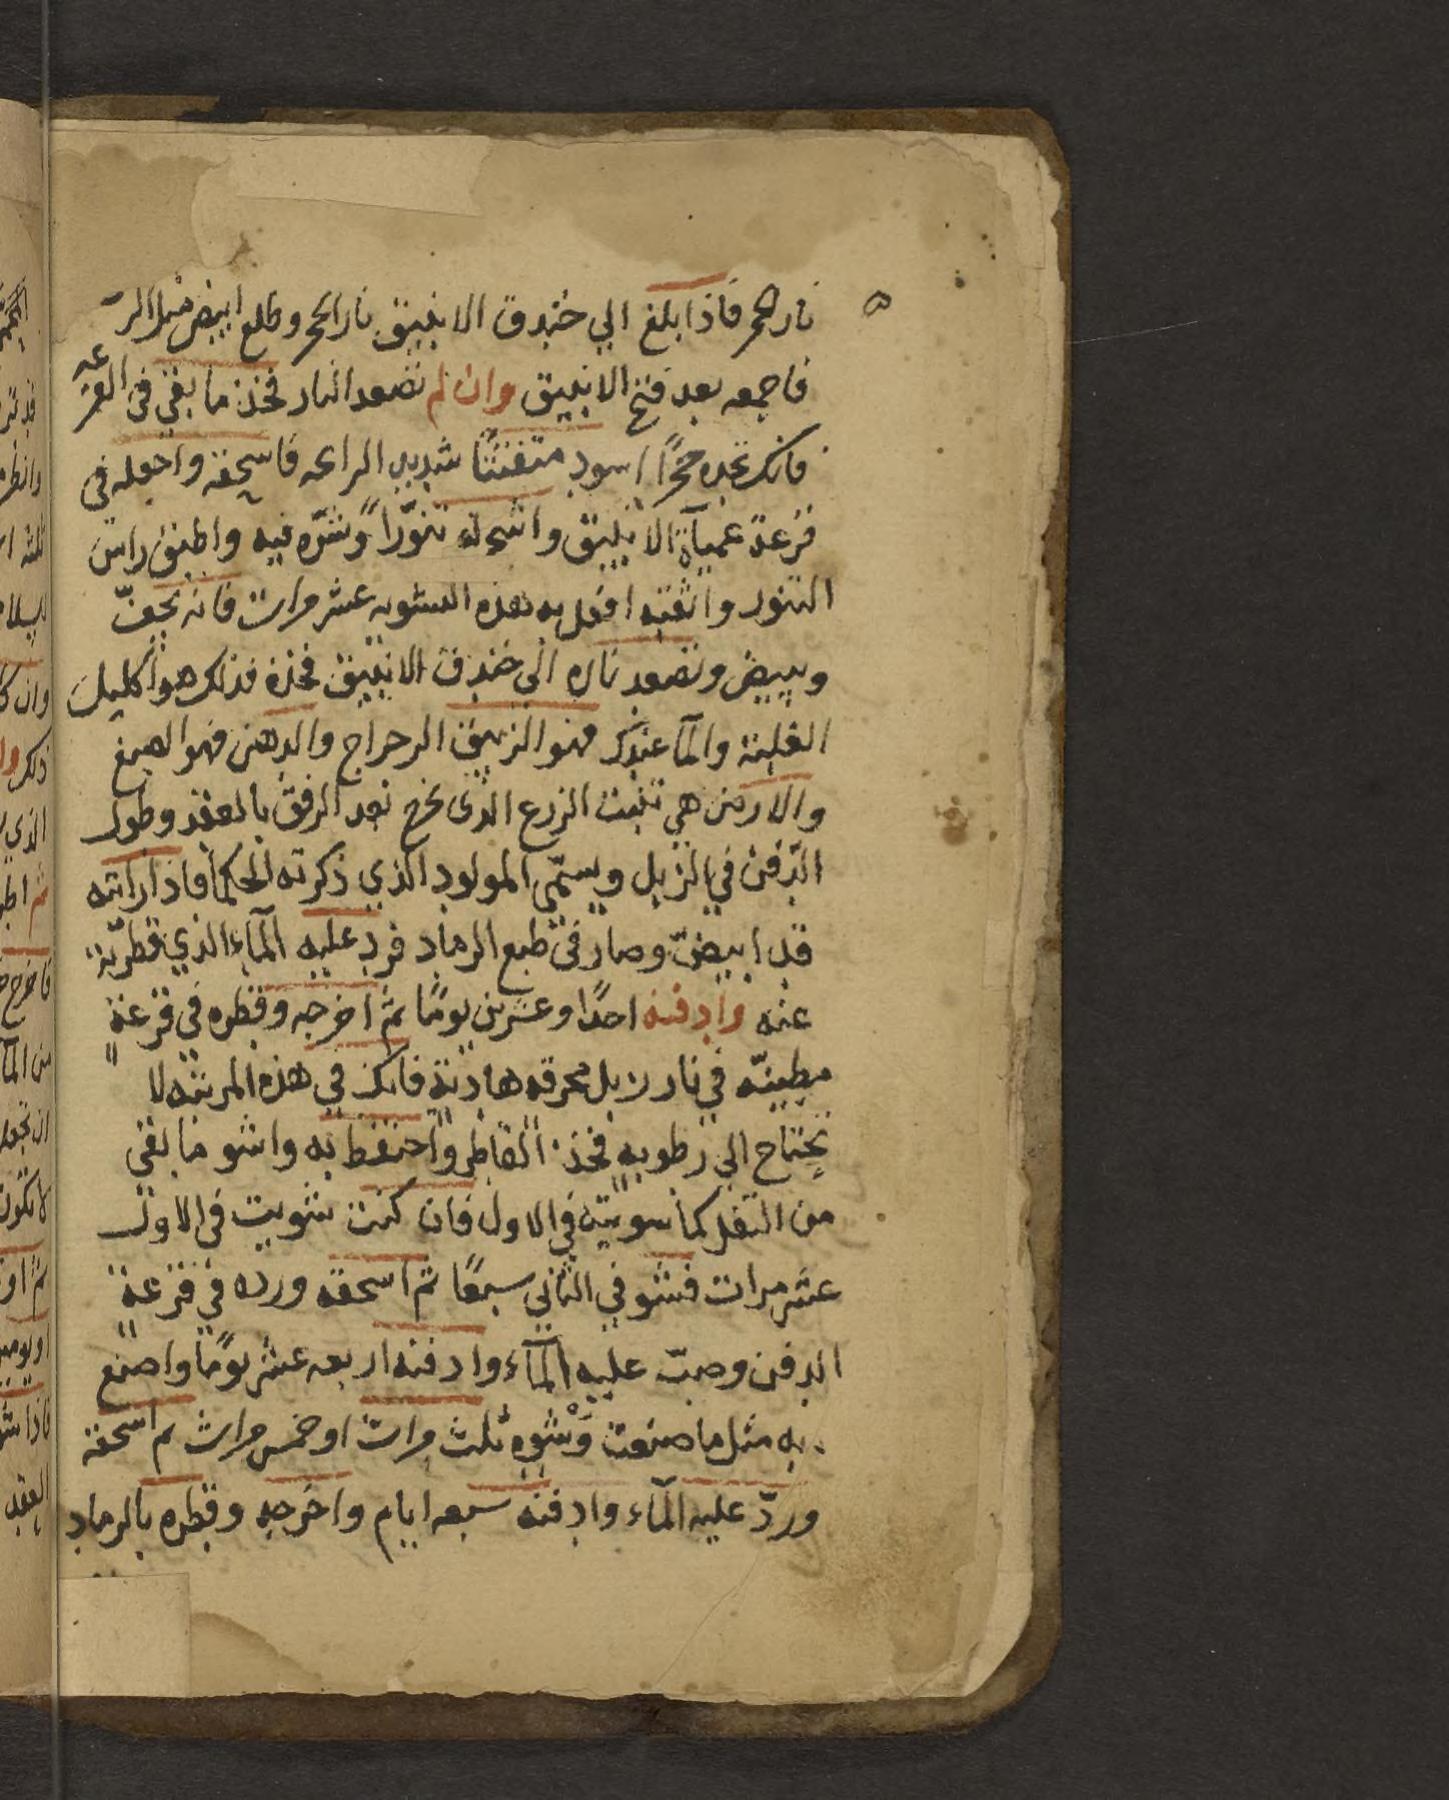 نار الحجر فاذا بلغ الي خندق الانبيق نار الحجر وطلع ابيض مثل الز
فاجمعه بعد فتح الانبيق وان لم تصعد النار فخذ ما بقي في القرعه
فانك تجده حجرًا اسود متفتتًا شديد الراىحه فاسحقه واجعله في
قرعة عميآة الانبيق واشجر له تنورًا وشوّه فيه واطبق راس
التنور واثقبه افعل به هذه التشويه عشر مرات فانه يجفّ
ويبيض وتصعد ناره الي خندق الانبيق فخذه فذلك هو اكليل
الغلبة والمآ عندك فهو الزيبق الرجراج والدهن فهو الصبغ
والارض هي تنبت الزرع الذي يخرج بعد الرفق بالعقد وطول
الدّفن في الزبل ويسمّى المولود الذي ذكرته الحكمآ فاذا راىته
قد ابيضّ وصار في طبع الرماد فرد عليه المآء الذي قطرته
عنه وادفنه احدًا وعشرين يومًا ثم اخرجه وقطره في قرعة
مطينّه في نار زبل محرقه هادىة فانك في هذه المرتبه لا
تحتاج الي رطوبه فخذ القاطر واحتفظ به واشو ما بقي
من الثفل كما شويته في الاول فان كنت شويت في الاول
عشر مرات فشو في الثاني سبعًا ثم اسحقه ورده في قزعة
الدفن وصبّ عليه المآء وادفنه اربعه عشر يومًا واصنع
به مثل ما صنعت وَشْوه ثلث مرات او خمس مرات ثم اسحقه
وردّ عليه المآء وادفنه سبعه ايام واخرجه وقطره بالرماد